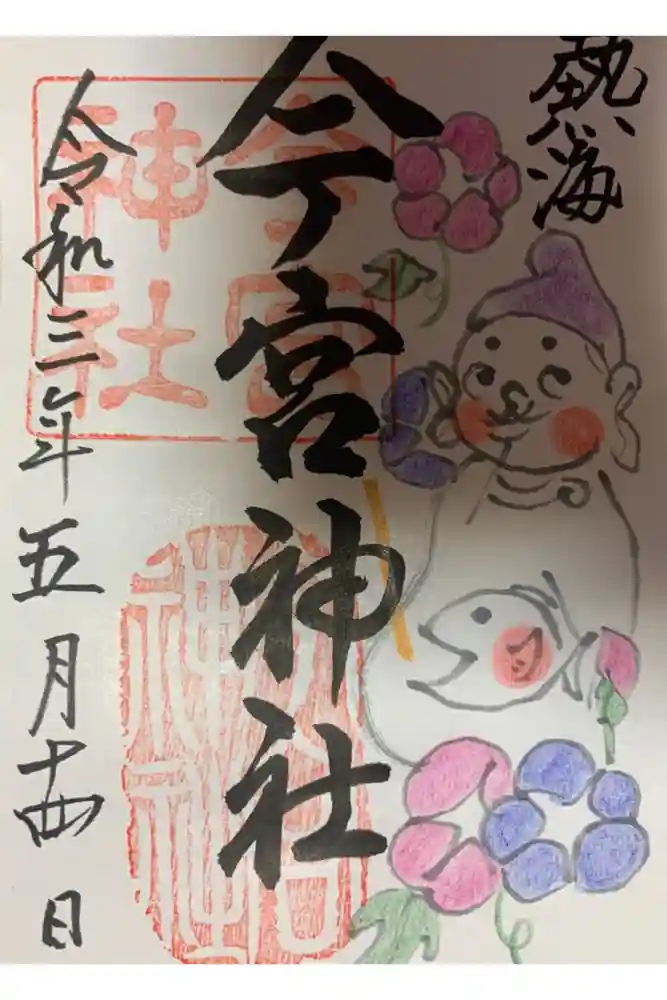 熱海
今宮神社
今宮
神社
令和三年五月十四日